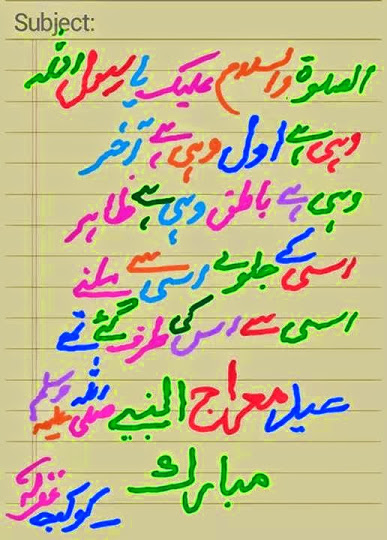 Subject:
الصلوة والسلام علیک یا رسول اللہ
وہی ہے اول وہی ہے آخر
وہی ہے باطن وہی ہے ظاہر
اسی کے جلوے اسی سے ملنے
اسی سے اس کی طرف گئے تھے
عید معراج النبی صلی اللہ علیہ وسلم
مبارک
کوکب غفرلہ